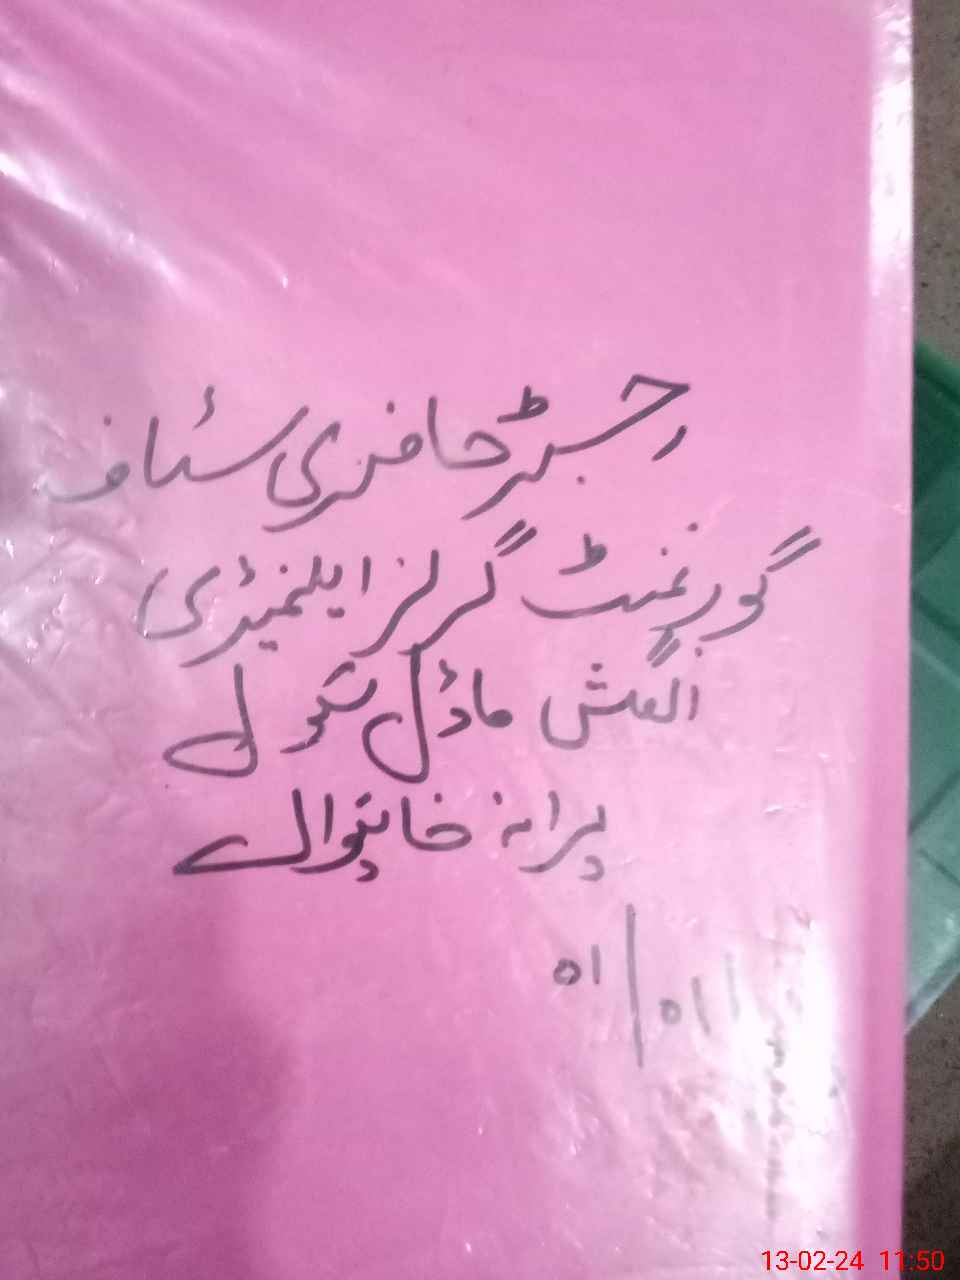 رجسٹر حاضری سٹاف
گورنمنٹ گرلز ایلیمنٹری
انگلش ماڈل سکول
پرانہ خانیوال
13-02-24 11:50